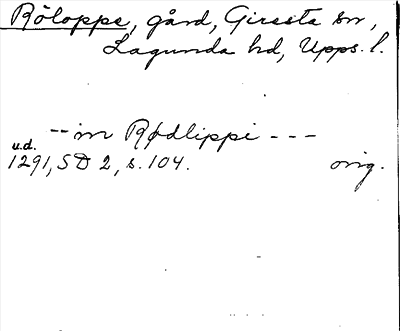 Röloppe, gård, Giresta sn,
Lagunda hd, Upps. l.
-- in Rødlippi ---
u.d.
1291, SD 2, s. 104. orig.